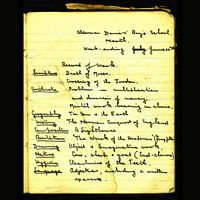 Alderman Davies' Boys School,
Neath.
Week-ending
Record of Work
Scripture Death of Moses.
Crossing of the Jordan.
Arithmetic Problems in multiplication
and division of money
Mental work bearing on above.
Geography The Sun & the Earth
History The Norman Conquest of England
Composition A Lighthouse
Recitation "The Wreck of the Hesperus" (Longfellow)
Drawing Object & Imaginative work.
Nature
Hygiene Cleanliness of the Teeth
Language Adjectives, including a written
exercise.